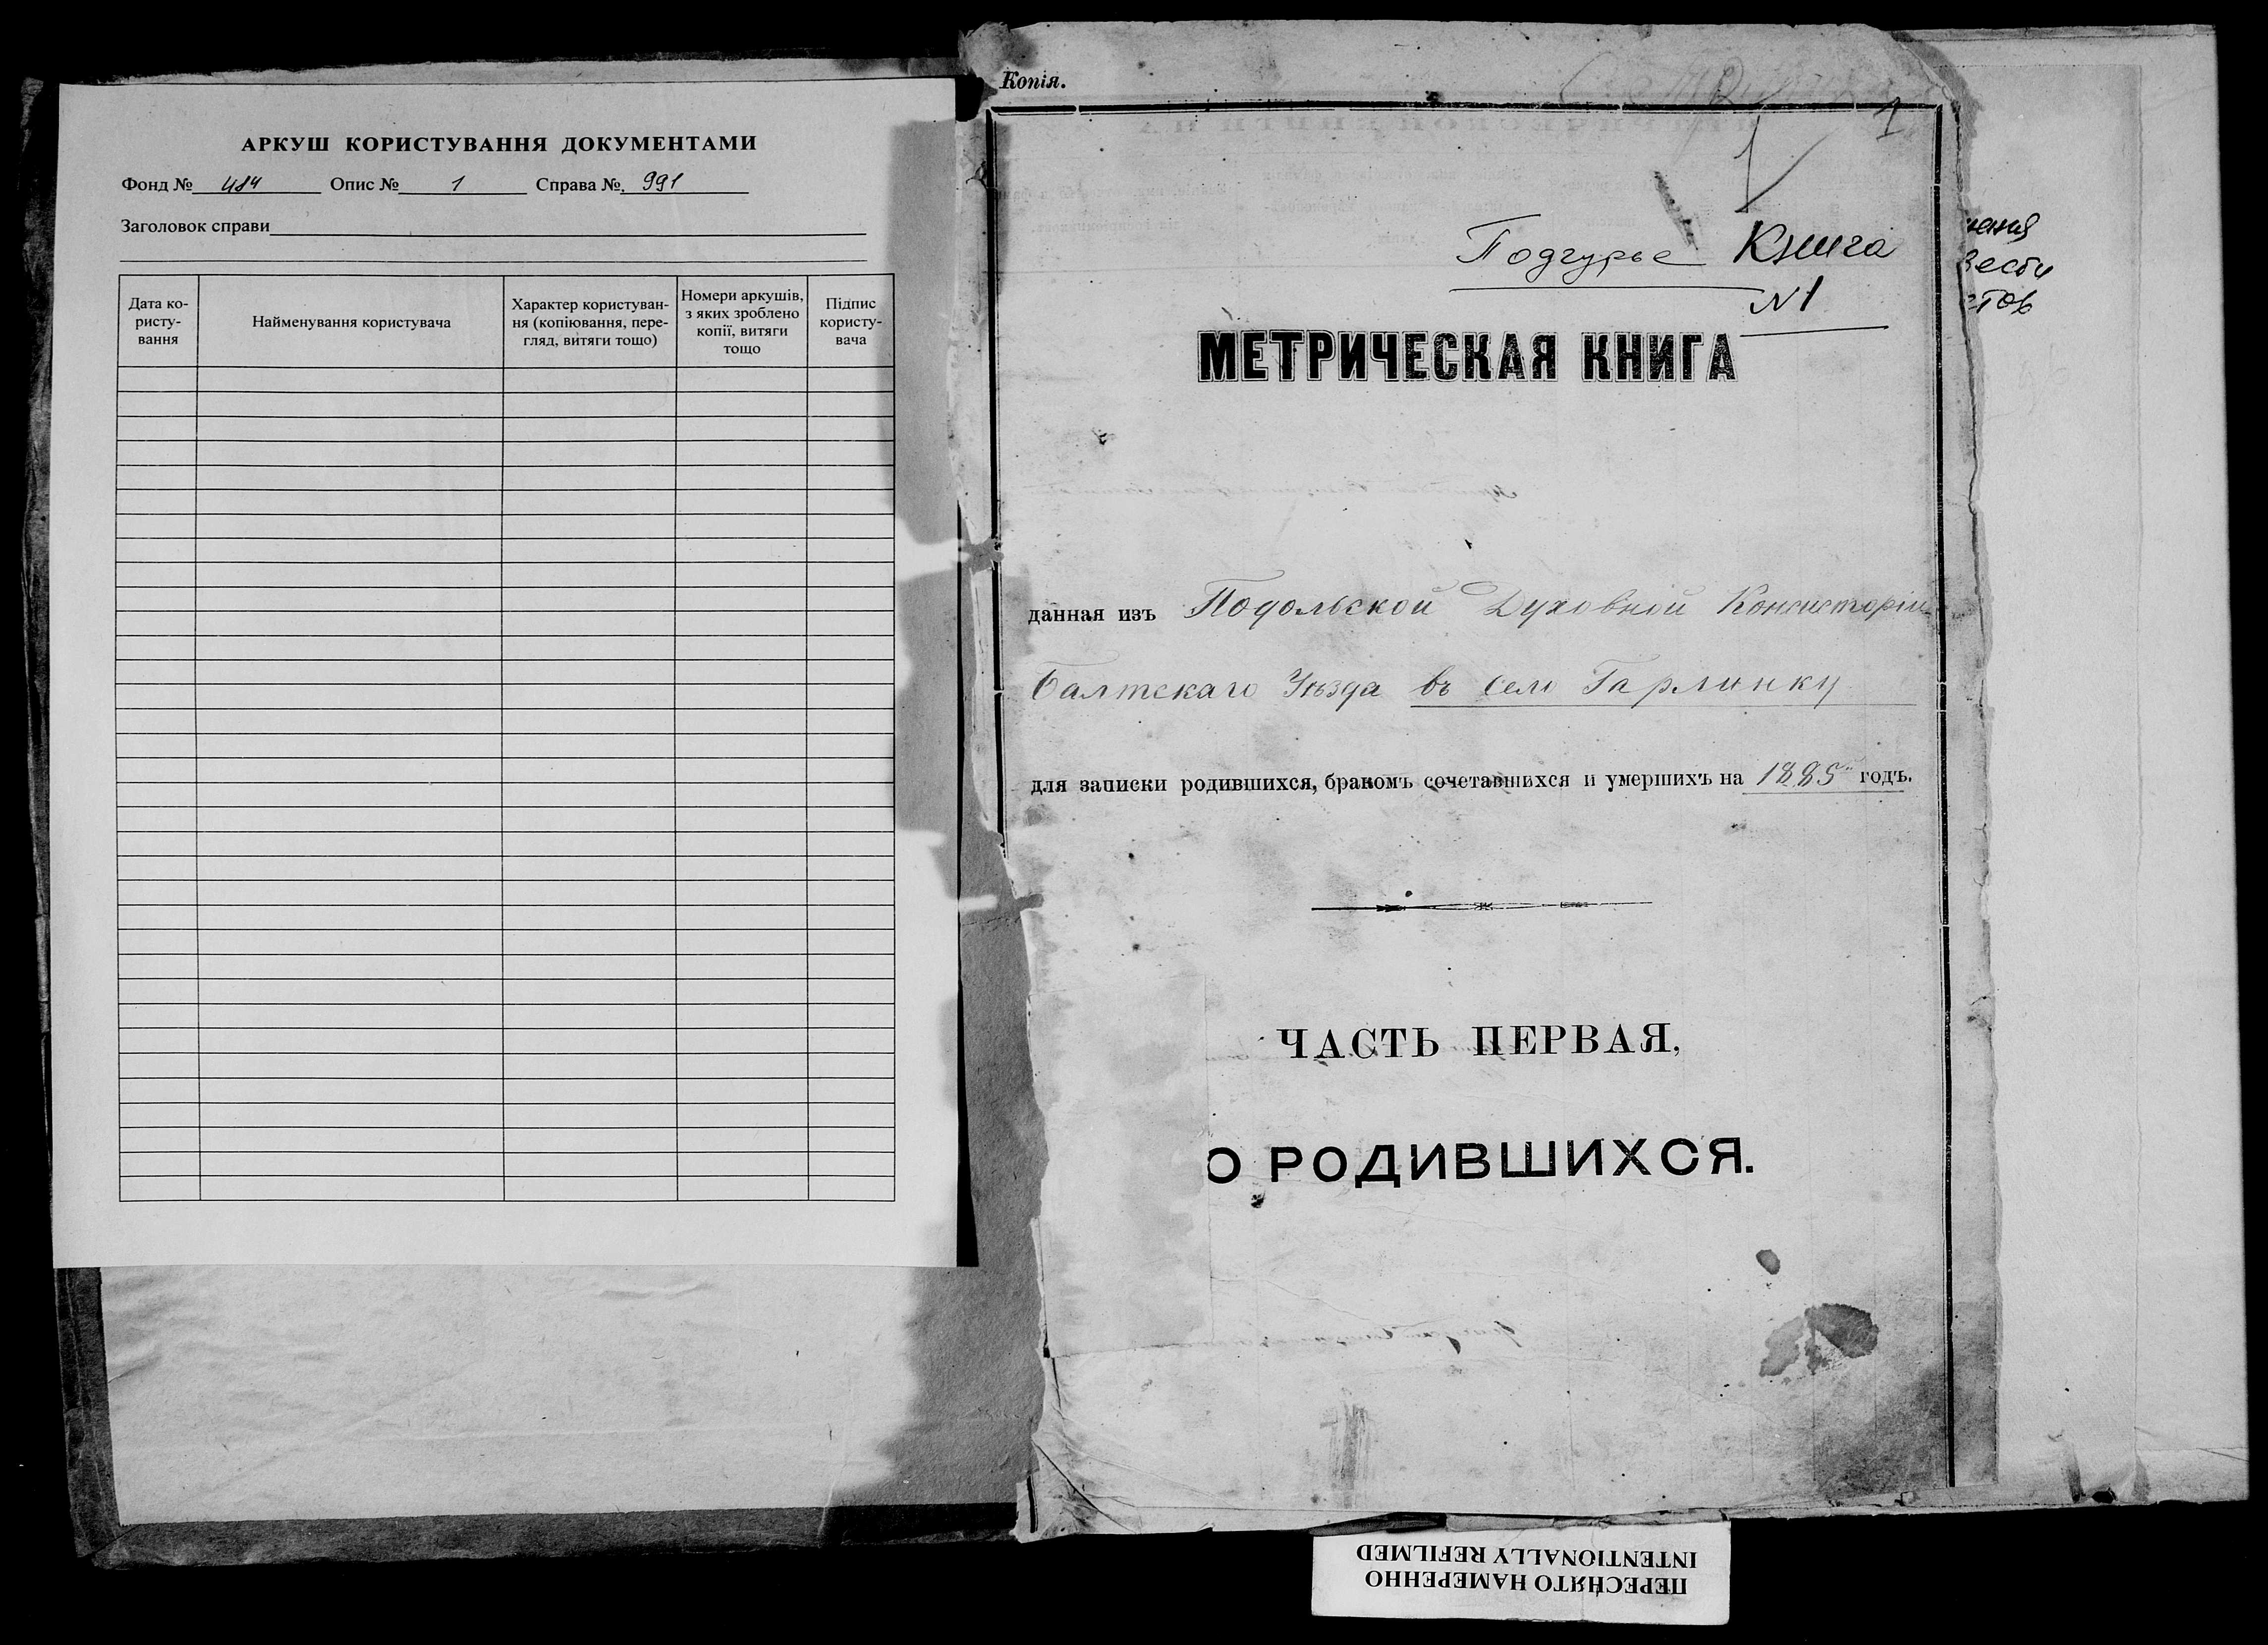 АРКУШ КОРИСТУВАННЯ ДОКУМЕНТАМИ
Фонд № 484 Опис № 1 Справа № 991
Заголовок справи
Дата ко-
ристу-
вання
Найменування користувача
Характер користуван-
ня (копіювання, пере-
гляд, витяги тощо)
Номери аркушів,
з яких зроблено
копії, витяги
тощо
Підпис
користу-
вача
Копія.
1
Подгурье Книга
N1
МЕТРИЧЕСКАЯ КНИГА
данная изъ Подольской Духовной Консисторіи
Балтскаго Уѣзда въ село Гарлинку
для записки родившихся, бракомъ сочетавшихся и умершихъ на 1885 годъ.
ЧАСТЬ ПЕРВАЯ,
О РОДИВШИХСЯ.
ПЕРЕСНЯТО НАМЕРЕННО
INTENTIONALLY REFILMED